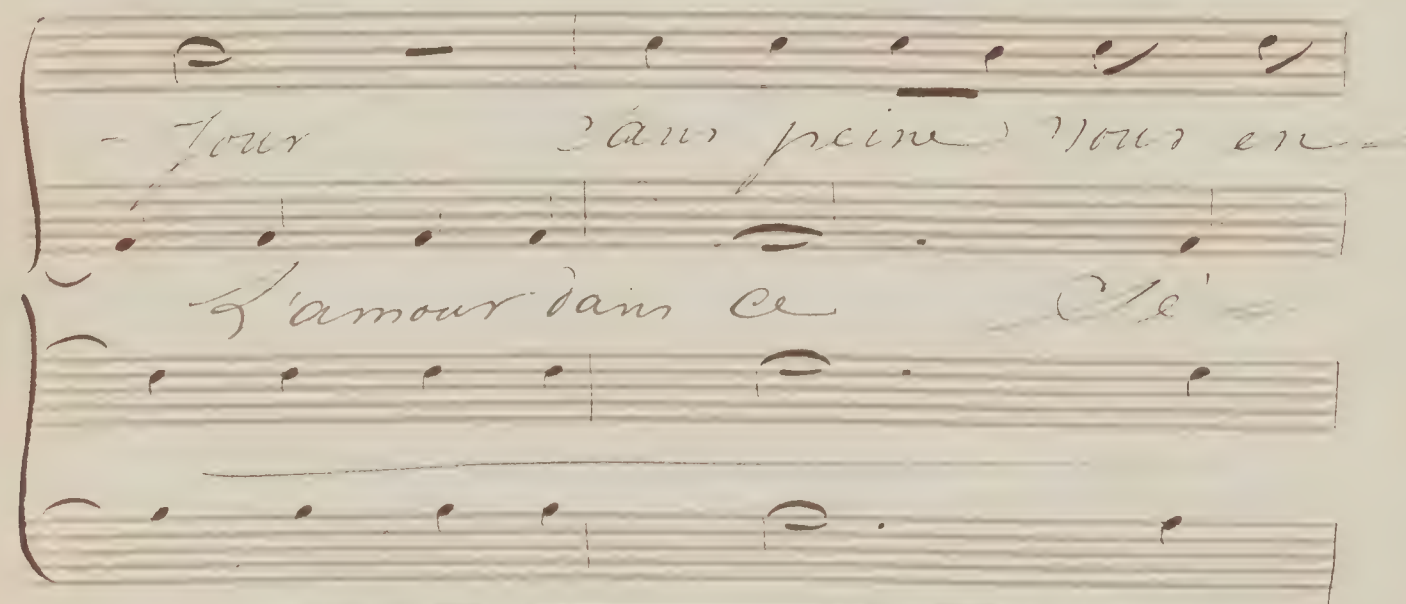 - jour Sans peine Nous en -
L'amour dans ce Sé -